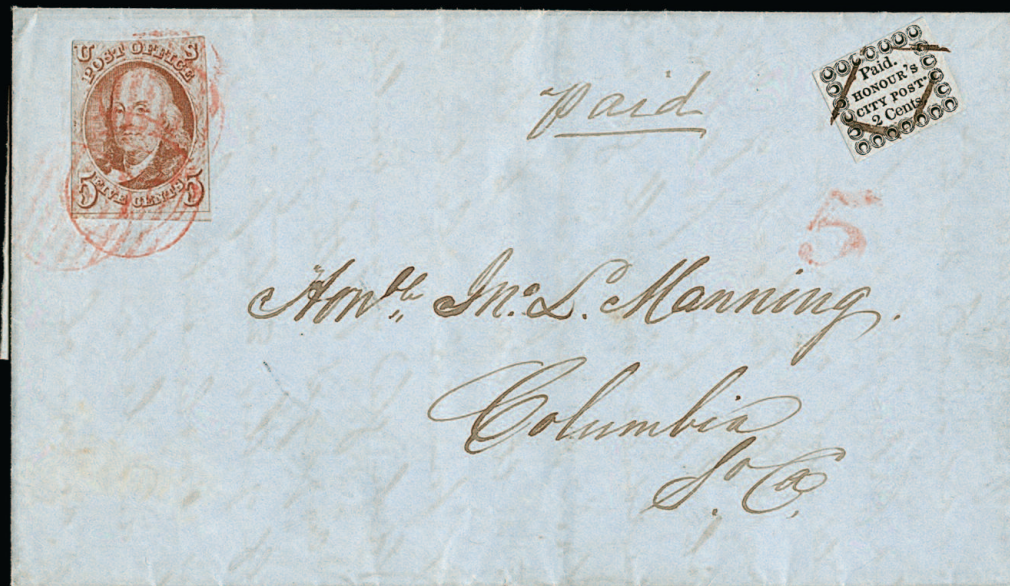 U S
POST OFFICE
5 FIVE CENTS 5
Paid
Paid.
HONOUR'S
CITY POST.
2 Cents
5
Honble Jno. L. Manning.
Columbia
So Ca.